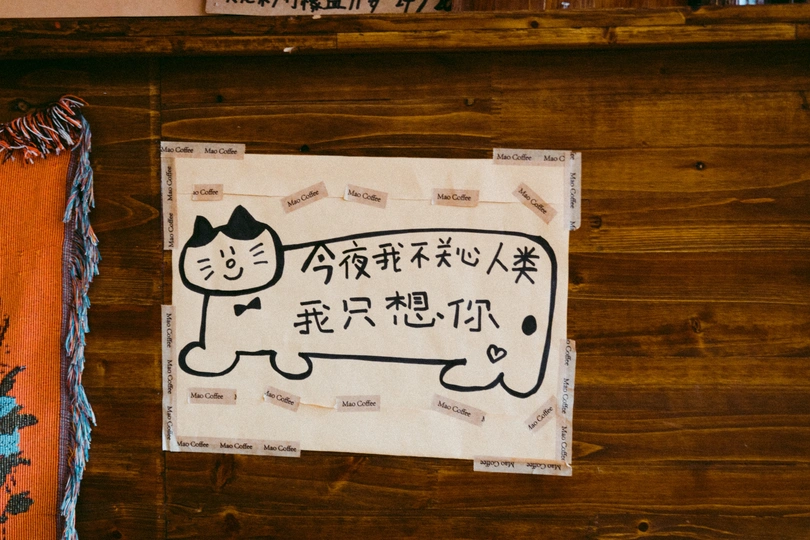 Mao Coffee Mao Coffee
Mao Coffee Mao C
Mao Coffee
Mao Coffee
Mao Coffee
ao Coffee
Mao Coffee
Mao Coffee
Mao Coffee
Mao Coffee
今夜我不关心人类
我只想你
Mao Coffee
Mao Coffee
Mao Coffee
Mao Coffee
Mao Coffee
Mao Coffee
Mao Coffee
Mao Coffee
Mao Coffee Mao Coffee Mao Coffee
Mao Coffee